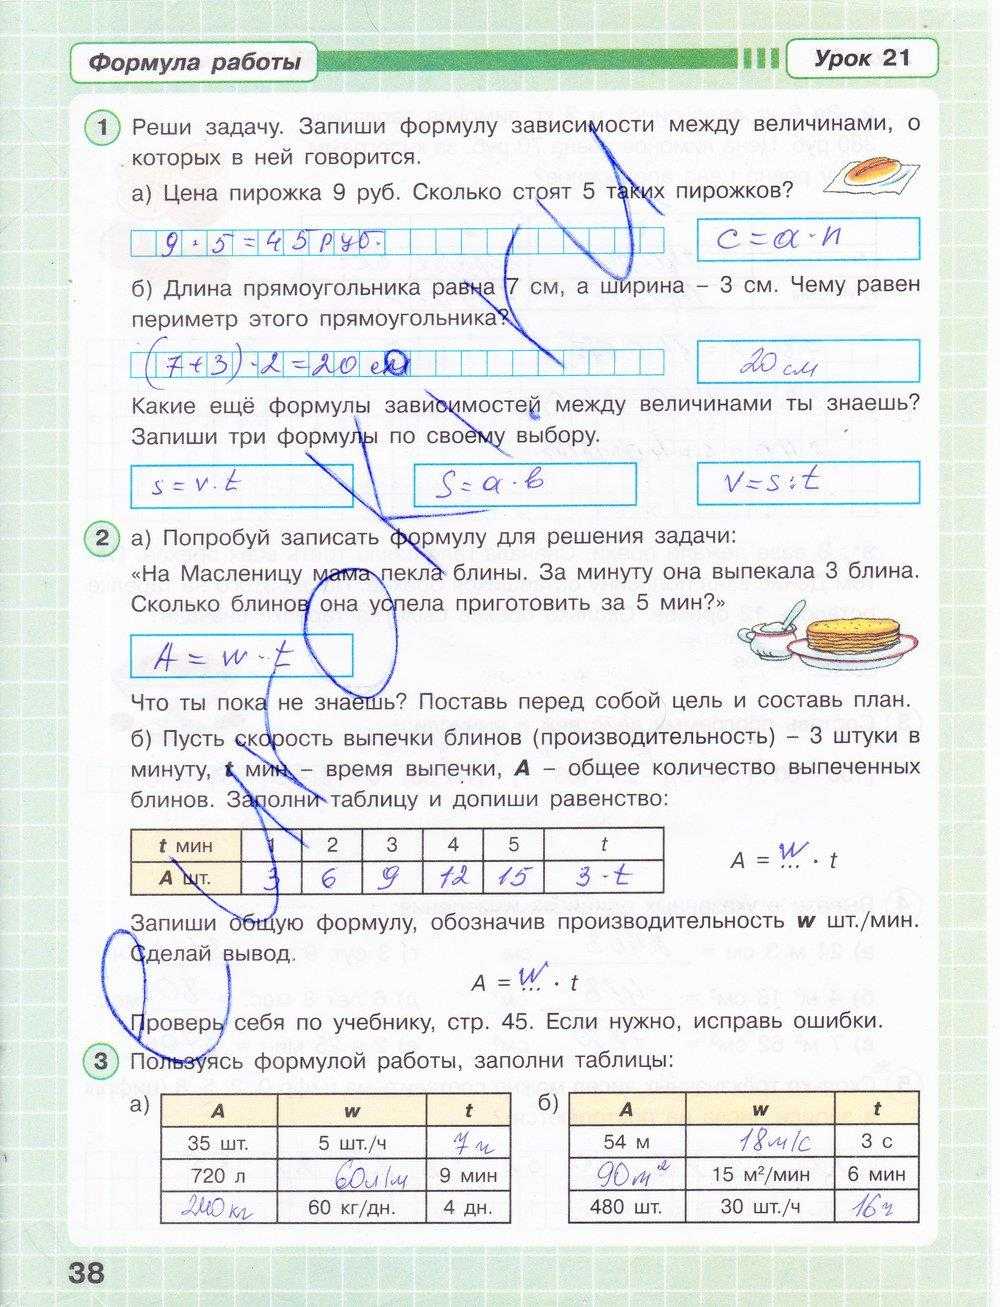 Формула работы
Урок 21
1 Реши задачу. Запиши формулу зависимости между величинами, о
которых в ней говорится.
а) Цена пирожка 9 руб. Сколько стоят 5 таких пирожков?
9 · 5 = 45 руб.
C = a · n
б) Длина прямоугольника равна 7 см, а ширина – 3 см. Чему равен
периметр этого прямоугольника?
(7+3) · 2 = 20 см
20 см
Какие ещё формулы зависимостей между величинами ты знаешь?
Запиши три формулы по своему выбору.
s = v · t
S = a · b
V = s : t
2 а) Попробуй записать формулу для решения задачи:
«На Масленицу мама пекла блины. За минуту она выпекала 3 блина.
Сколько блинов она успела приготовить за 5 мин?»
A = w · t
Что ты пока не знаешь? Поставь перед собой цель и составь план.
б) Пусть скорость выпечки блинов (производительность) – 3 штуки в
минуту, t мин – время выпечки, A – общее количество выпеченных
блинов. Заполни таблицу и допиши равенство:
t мин 1 2 3 4 5 t
A шт. 3 6 9 12 15 3 · t
A = w ... · t
Запиши общую формулу, обозначив производительность w шт./мин.
Сделай вывод.
A = w ... · t
Проверь себя по учебнику, стр. 45. Если нужно, исправь ошибки.
3 Пользуясь формулой работы, заполни таблицы:
а)
A w t
35 шт. 5 шт./ч 7 ч
720 л 60л/м 9 мин
240 кг 60 кг/дн. 4 дн.
б)
A w t
54 м 18 м/с 3 с
90 м² 15 м²/мин 6 мин
480 шт. 30 шт./ч 16 ч
38
eurokki.ru